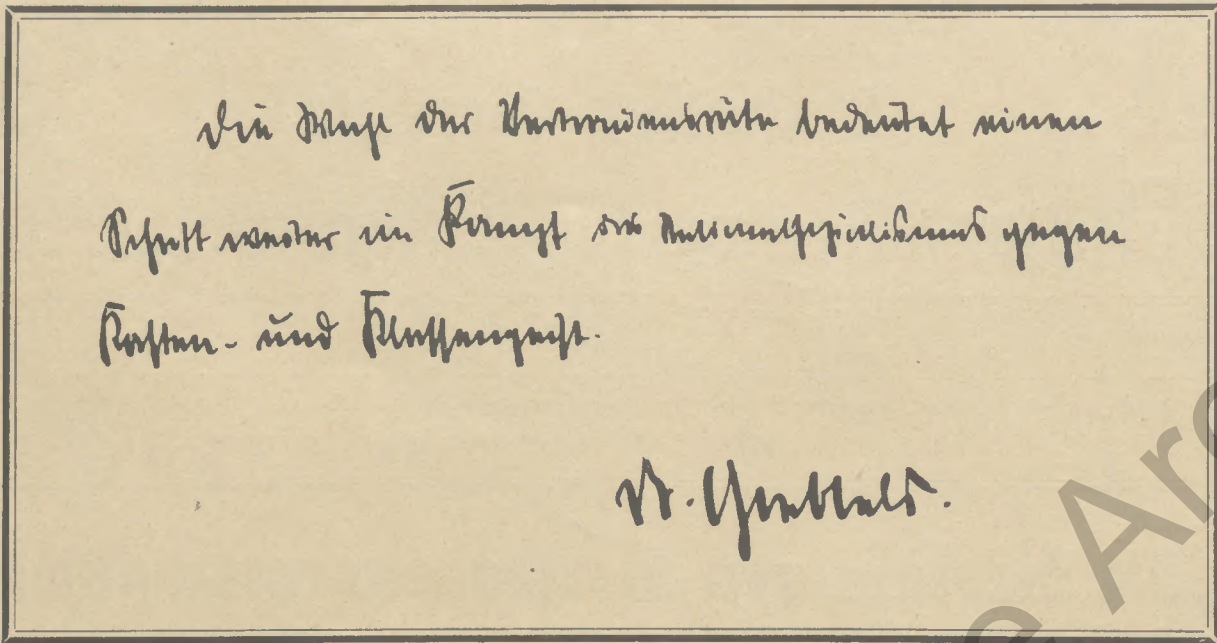 Die Wahl der Vertrauensräte bedeutet einen
Schritt weiter im Kampf des Nationalsozialismus gegen
Kasten- und Klassengeist.
Dr. Goebbels.